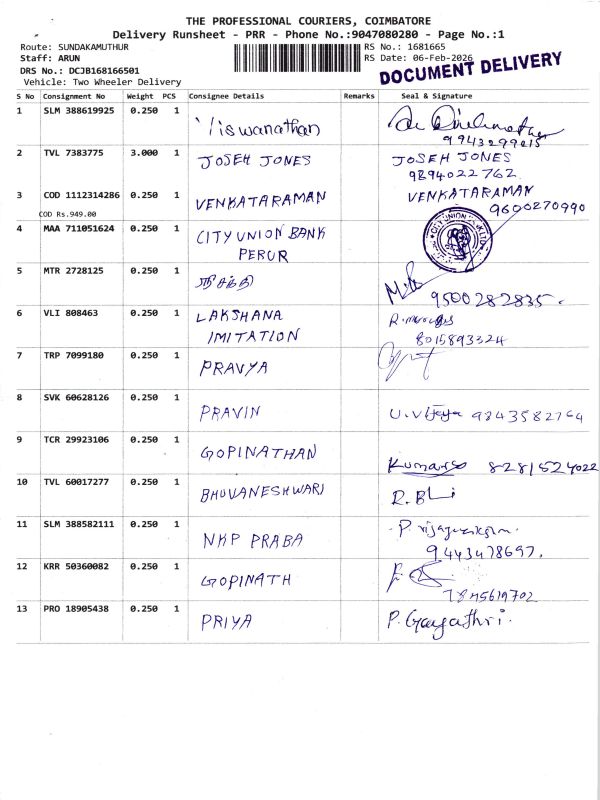 THE PROFESSIONAL COURIERS, COIMBATORE
Delivery Runsheet - PRR - Phone No.:9047080280 - Page No.:1
Route: SUNDAKAMUTHUR
RS No.: 1681665
Staff: ARUN
RS Date: 06-Feb-2026
DRS No.: DCJB168166501
DOCUMENT DELIVERY
Vehicle: Two Wheeler Delivery
S No Consignment No Weight PCS Consignee Details Remarks Seal & Signature
1 SLM 388619925 0.250 1 Viswanathan
9943299215
2 TVL 7383775 3.000 1 JOSEH JONES JOSEH JONES
9894022762
3 COD 1112314286 0.250 1 VENKATARAMAN VENKATARAMAN
COD Rs.949.00 9600270990
4 MAA 711051624 0.250 1 CITY UNION BANK
PERUR
5 MTR 2728125 0.250 1
9500282835.
6 VLI 808463 0.250 1 LAKSHANA
IMITATION 8015893324
7 TRP 7099180 0.250 1 PRAVYA
8 SVK 60628126 0.250 1 PRAVIN U.Vijaya 9843582764
9 TCR 29923106 0.250 1 GOPINATHAN
8281524022
10 TVL 60017277 0.250 1 BHUVANESHWARI
11 SLM 388582111 0.250 1 NKP PRABA
9443478697.
12 KRR 50360082 0.250 1 GOPINATH
7845619702
13 PRO 18905438 0.250 1 PRIYA P. Gayathri.